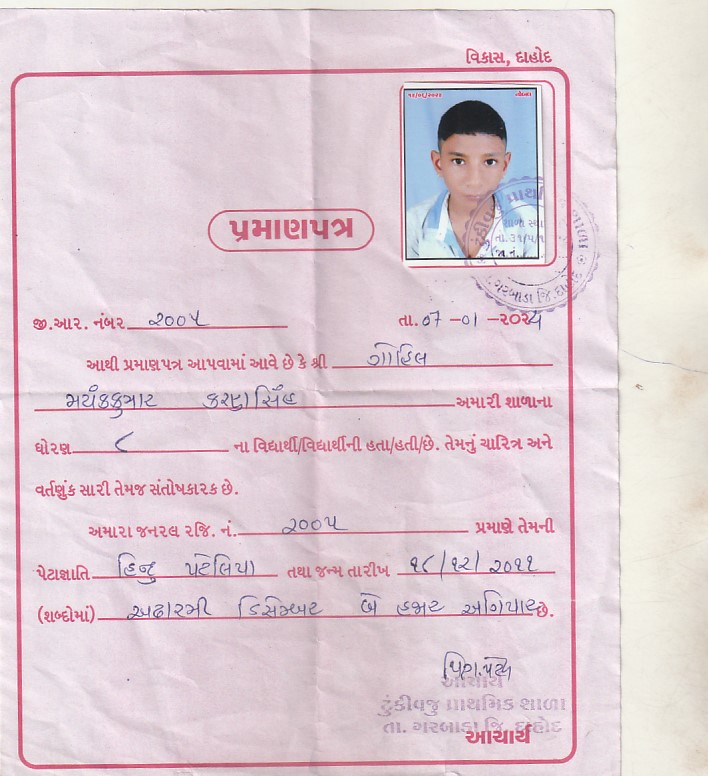 વિકાસ, દાહોદ
પ્રમાણપત્ર
જી.આર. નંબર ૨૦૦૫
તા. ૦7 -૦1 -૨૦૨૫
આથી પ્રમાણપત્ર આપવામાં આવે છે કે શ્રી ગોહિલ
મયંકકુમાર કરણસિંહ અમારી શાળાના
ધોરણ ૮ ના વિદ્યાર્થી/વિદ્યાર્થીની હતા/હતી/છે. તેમનું ચારિત્ર અને
વર્તણુંક સારી તેમજ સંતોષકારક છે.
અમારા જનરલ રજિ. નં. ૨૦૦૫ પ્રમાણે તેમની
પેટાજ્ઞાતિ હિન્દુ પટેલિયા તથા જન્મ તારીખ ૧૮/૧૨/૨૦૧૧
(શબ્દોમાં) અઢારમી ડિસેમ્બર બે હજાર અગિયાર છે.
આચાર્ય
ટુંકીવજુ પ્રાથમિક શાળા
તા. ગરબાડા જિ. દાહોદ
આચાર્ય